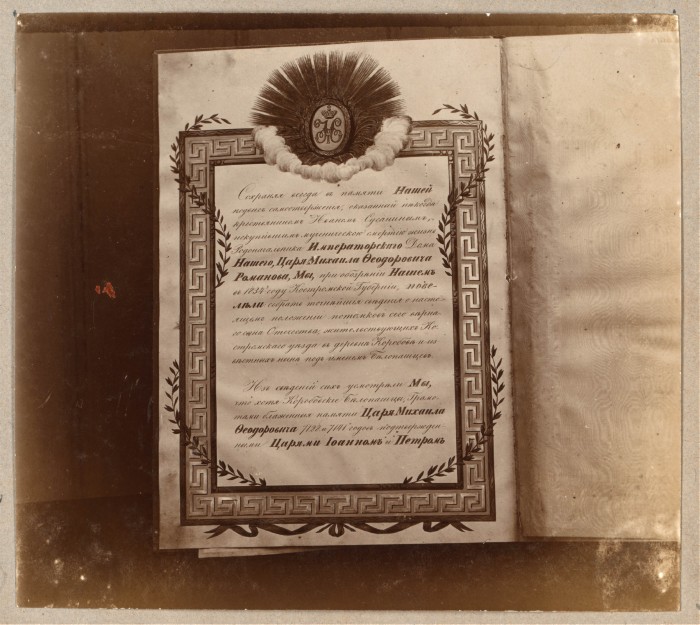 Сохраняя всегда въ памяти Нашей
подвигъ самоотверженія, оказанный
крестьяниномъ Иваномъ Сусанинымъ,
искупившимъ мученическою смертію жизнь
Родоначальника Императорскаго Дома
Нашего, Царя Михаила Ѳеодоровича
Романова, Мы, при обозрѣніи Нашемъ
въ 1834 году Костромской Губерніи, пове-
лѣли собрать точнѣйшія свѣдѣнія о насто-
ящемъ положеніи потомковъ сего вѣрна-
го сына Отечества, жительствующихъ Ко-
стромскаго уѣзда въ деревнѣ Коробовѣ и из-
вѣстныхъ нынѣ подъ именемъ Бѣлопашцевъ.
Изъ свѣдѣній сихъ усмотрѣли Мы,
что хотя Коробовскіе Бѣлопашцы, Грамо-
тами блаженныя памяти Царя Михаила
Ѳеодоровича годовъ подтвержден-
ными Царями Іоанномъ и Петромъ